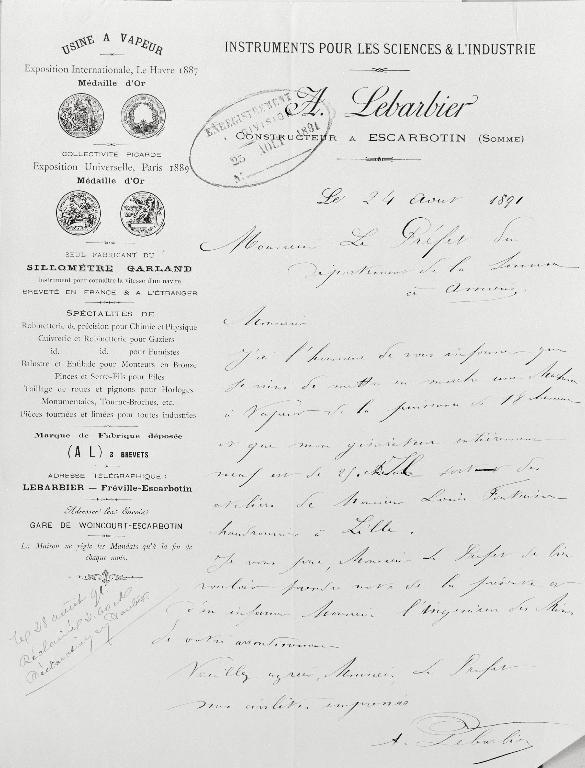 USINE A VAPEUR
Exposition Internationale, Le Havre 1887
Médaille d'Or
COLLECTIVITÉ PICARDE
Exposition Universelle, Paris 1889
Médaille d'Or
SEUL FABRICANT DU
SILLOMÈTRE GARLAND
Instrument pour connaître la vitesse d'un navire
BREVETÉ EN FRANCE & A L'ÉTRANGER
SPÉCIALITÉS DE
Robinetterie de précision pour Chimie et Physique
Cuivrerie et Robinetterie pour Gaziers
id. id. pour Fumistes
Balustre et Embase pour Monteurs en Bronze
Pinces et Serre-Fils pour Piles
Taillage de roues et pignons pour Horloges
Monumentales, Tourne-Broches, etc.
Pièces tournées et limées pour toutes industries
Marque de Fabrique déposée
(A L) 3 BREVETS
ADRESSE TÉLÉGRAPHIQUE :
LEBARBIER — Fréville-Escarbotin
Adresser les Envois
GARE DE WOINCOURT-ESCARBOTIN
La Maison ne règle les Mandats qu'à la fin de
chaque mois.
INSTRUMENTS POUR LES SCIENCES & L'INDUSTRIE
A. Lebarbier
CONSTRUCTEUR A ESCARBOTIN (SOMME)
ENREGISTREMENT
25 AOUT 1891
Le 24 Aout 1891
Monsieur Le Préfet du
Département de la Somme
à Amiens
Monsieur
J'ai l'honneur de vous informer que
Je viens de mettre en marche une Machine
à Vapeur de la puissance de 18 chevaux
et que mon générateur entièrement
neuf est de 25 sortant des
ateliers de Monsieur Louis Fontaine
chaudronnier à Lille.
Je vous prie, Monsieur Le Préfet de bien
vouloir prendre note de la présente et
d'en informer Monsieur l'Ingénieur des Mines
de votre arrondissement
Veuillez agréer, Monsieur Le Préfet
mes civilités empressées
A. Lebarbier
28 aout 91